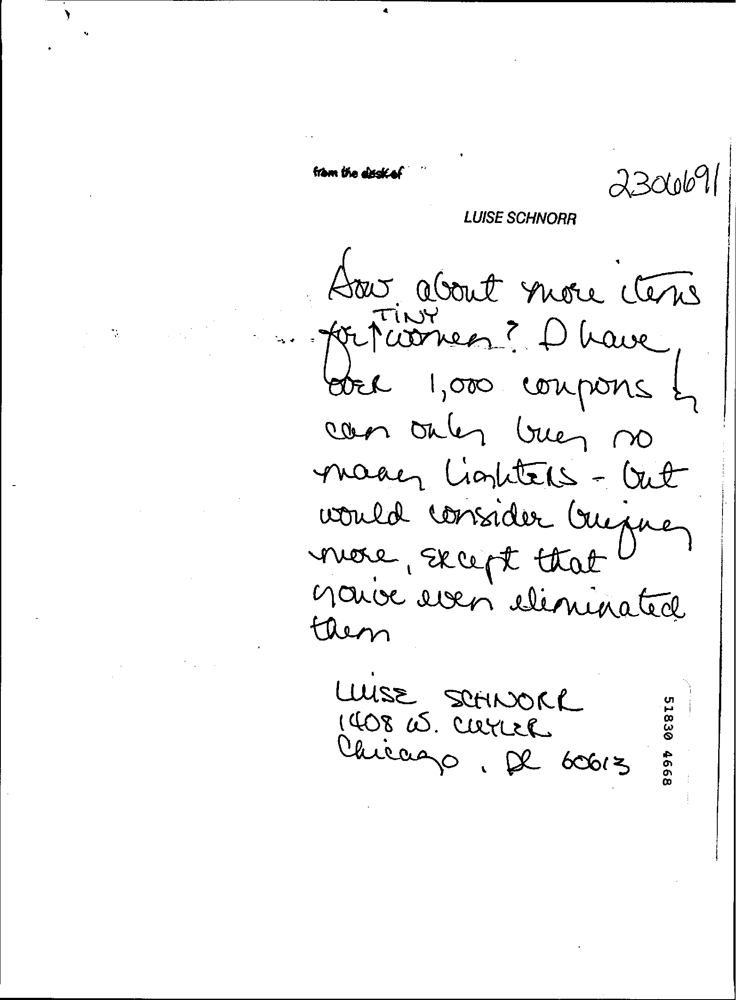 from the desk of
2306691
LUISE SCHNORR
How about more items
TINY
for ↑ women? I have
over 1,000 coupons &
can only buy so
many lighters - but
would consider buying
more, except that
you've even eliminated
them
LUISE SCHNORR
1408 W. CUYLER
Chicago, IL 60613
51830 4668